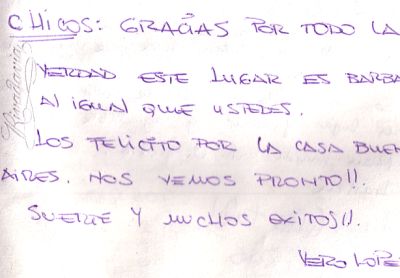 CHICOS: GRACIAS POR TODO LA
VERDAD ESTE LUGAR ES BARBA
AL IGUAL QUE USTEDES.
LOS FELICITO POR LA CASA BUEN
AIRES. NOS VEMOS PRONTO!!.
SUERTE Y MUCHOS EXITOS!!.
VERO LOPE